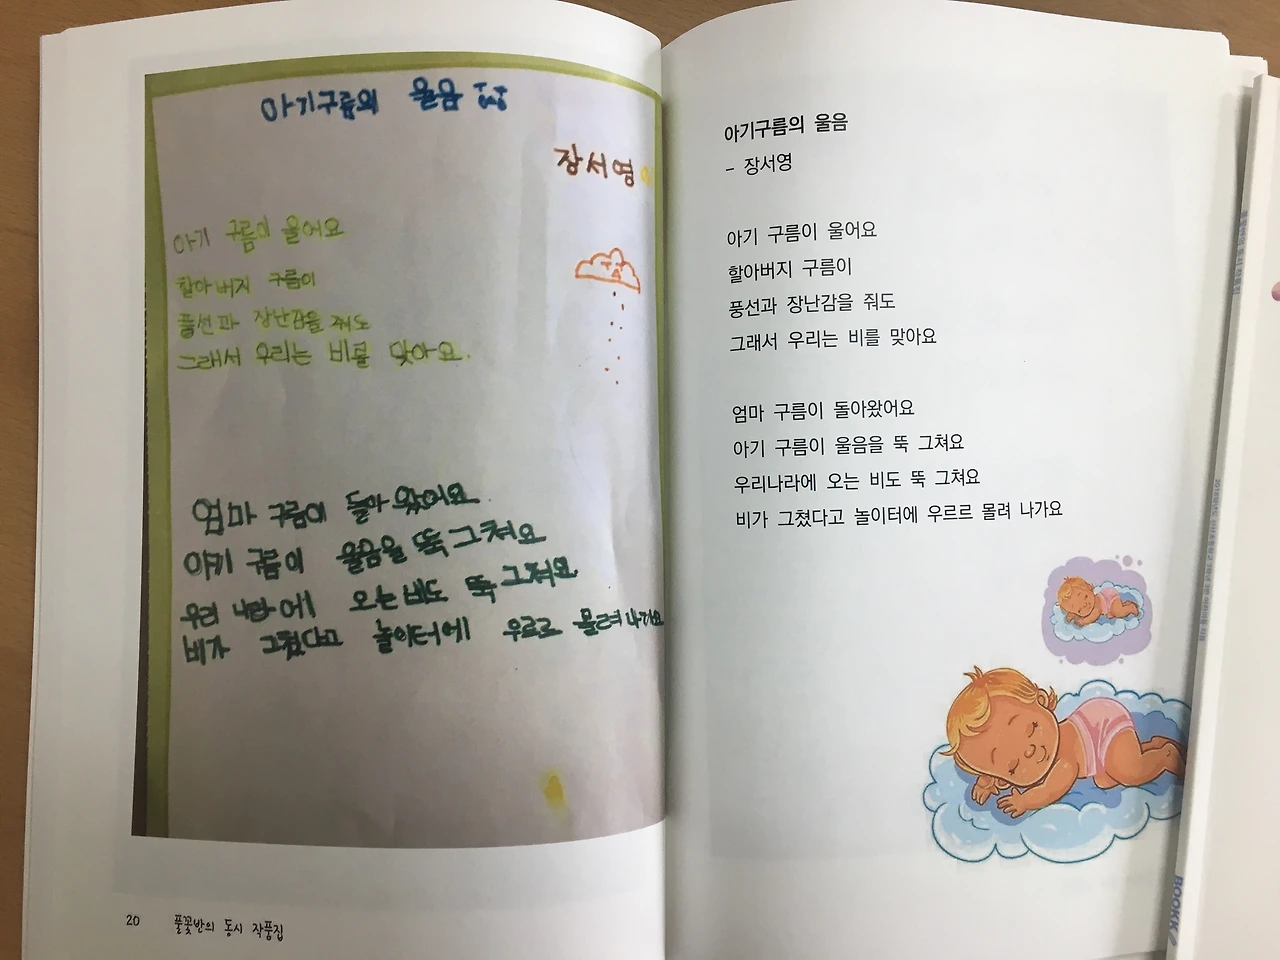 아기구름의 울음 ㅠㅠ
장서영
아기 구름이 울어요
할아버지 구름이
풍선과 장난감을 줘도
그래서 우리는 비를 맞아요.
엄마 구름이 돌아왔어요
아기 구름이 울음을 뚝 그쳐요
우리 나라에 오는 비도 뚝 그쳐요
비가 그쳤다고 놀이터에 우르르 몰려 나가요
20 풀꽃반의 동시 작품집
아기구름의 울음
– 장서영
아기 구름이 울어요
할아버지 구름이
풍선과 장난감을 줘도
그래서 우리는 비를 맞아요
엄마 구름이 돌아왔어요
아기 구름이 울음을 뚝 그쳐요
우리나라에 오는 비도 뚝 그쳐요
비가 그쳤다고 놀이터에 우르르 몰려 나가요
BOOKK